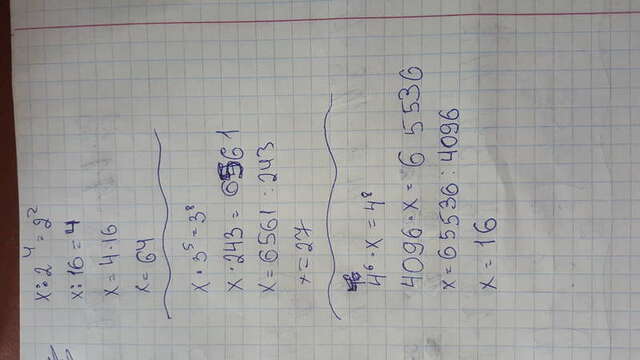 x:2⁴=2²
x:16=4
x=4·16
x=64
x·3⁵=3⁸
x·243=6561
x=6561:243
x=27
4⁶·x=4⁸
4096·x=65536
x=65536:4096
x=16